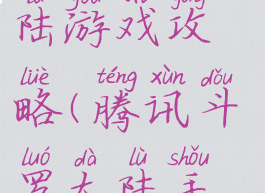 lù yóu xì gōng
陆游戏攻
lüè téng xùn dǒu
略(腾讯斗
luó dà lù shǒu
罗大陆手